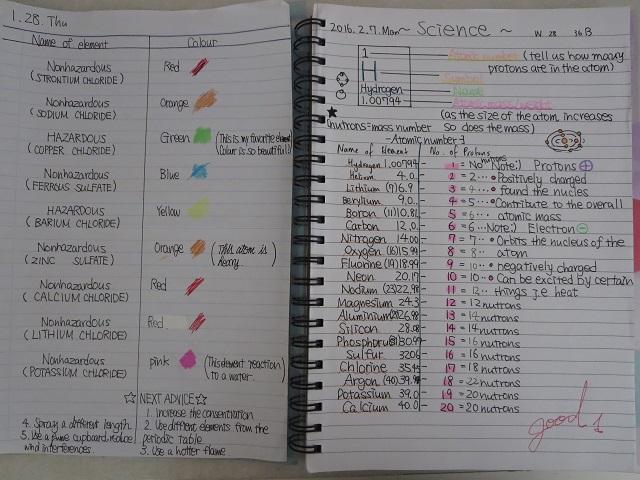 1.28. Thu
Name of element Colour
Nonhazardous Red
(STRONTIUM CHLORIDE)
Nonhazardous Orange
(SODIUM CHLORIDE)
HAZARDOUS Green (This is my favorite element
(COPPER CHLORIDE) Colour is so beautiful!)
Nonhazardous Blue
(FERROUS SULFATE)
HAZARDOUS Yellow
(BARIUM CHLORIDE)
Nonhazardous Orange (This atom is
(ZINC SULFATE) heavy.)
Nonhazardous Red
(CALCIUM CHLORIDE)
Nonhazardous Red
(LITHIUM CHLORIDE)
Nonhazardous pink (This element reaction
(POTASSIUM CHLORIDE) to a water.)
☆ NEXT ADVICE ☆
1. Increase the consentration
2. Use diffrent elements from the
periodic table
3. Use a hotter flame
4. Spray a different length
5. Use a fume cupboard, reduce
wind interferences.
2016. 2. 7. Mon ~ Science ~ W. 28 36 B
1 Atomic number (tell us how many
protons are in the atom)
H Symbol
Hydrogen Name
1.00794 Atomic mass/weight
(as the size of the atom increases
so does the mass)
(nutrons=mass number
-Atomic number)
Name of Element No. of Protons
Hydrogen 1.00794 - 1 = No nutrons Note:) Protons ⊕
Helium 4.0.. - 2 = 2 ... • Positively charged
Lithium (7)6.9.. - 3 = 4 ... • found the nucles
Beryllium 9.0.. - 4 = 5 ... • Contribute to the overall
Boron (11)10.81 - 5 = 6 ... atomic mass
Carbon 12.0.. - 6 = 6 ... Note:) Electron ⊖
Nitrogen 14.00 - 7 = 7 ... • Orbits the nucleus of the
Oxygen (16)15.99 - 8 = 8 ... atom
Fluorine (19)18.99 - 9 = 10 ... • negatively charged
Neon 20.17 - 10 = 10 ... • Can be excited by certain
Nodium (23)22.98 - 11 = 12 ... things i.e heat
Magnesium 24.3 - 12 = 12 nutrons
Aluminium 26.98 - 13 = 14 nutrons
Silicon 28.08 - 14 = 14 nutrons
Phosphorus (31)30.97 - 15 = 16 nutrons
Sulfur 32.06 - 16 = 16 nutrons
Chlorine 35.45 - 17 = 18 nutrons
Argon (40)39.9 - 18 = 22 nutrons
Potassium 39.0 - 19 = 20 nutrons
Calcium 40.0 - 20 = 20 nutrons
good!